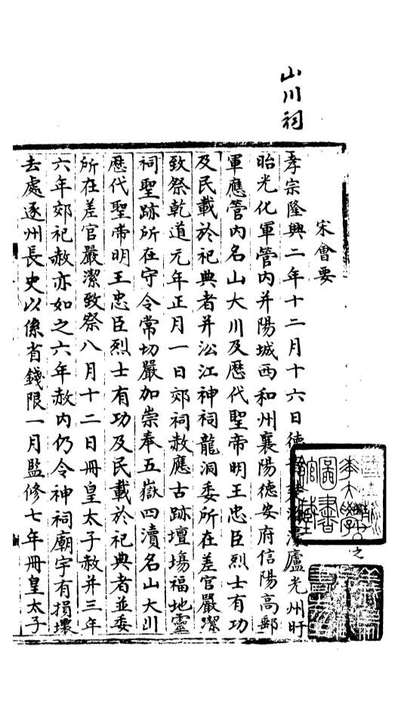 山川祠
宋會要
孝宗隆興二年十二月十六日德廬光州盱
眙光化軍管內并陽城西和州襄陽德安府信陽高郵
軍應管內名山大川及歷代聖帝明王忠臣烈士有功
及民載於祀典者并淞江神祠龍洞委所在差官嚴潔
致祭乾道元年正月一日郊祠赦應古跡壇塲福地靈
祠聖跡所在守令常切嚴加崇奉五嶽四瀆名山大川
歷代聖帝明王忠臣烈士有功及民載於祀典者並委
所在差官嚴潔致祭八月十二日冊皇太子赦并三年
六年郊祀赦亦如之六年赦內仍令神祠廟宇有損壞
去處逐州長史以係省錢限一月監修七年冊皇太子